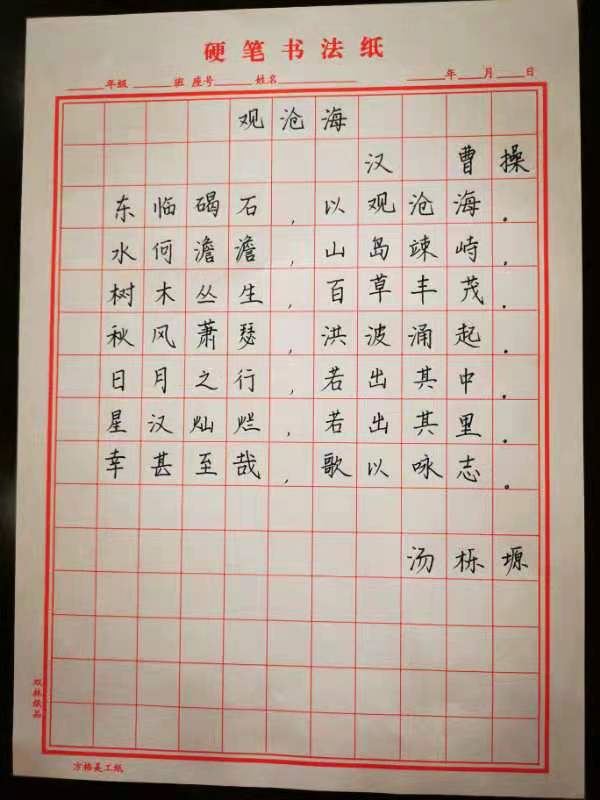 硬笔书法纸
年级 班 座号 姓名 年 月 日
观沧海
汉 曹操
东临碣石，以观沧海。
水何澹澹，山岛竦峙，
树木丛生，百草丰茂。
秋风萧瑟，洪波涌起。
日月之行，若出其中。
星汉灿烂，若出其里。
幸甚至哉，歌以咏志。
汤栎塬
双林纸品
方格美工纸